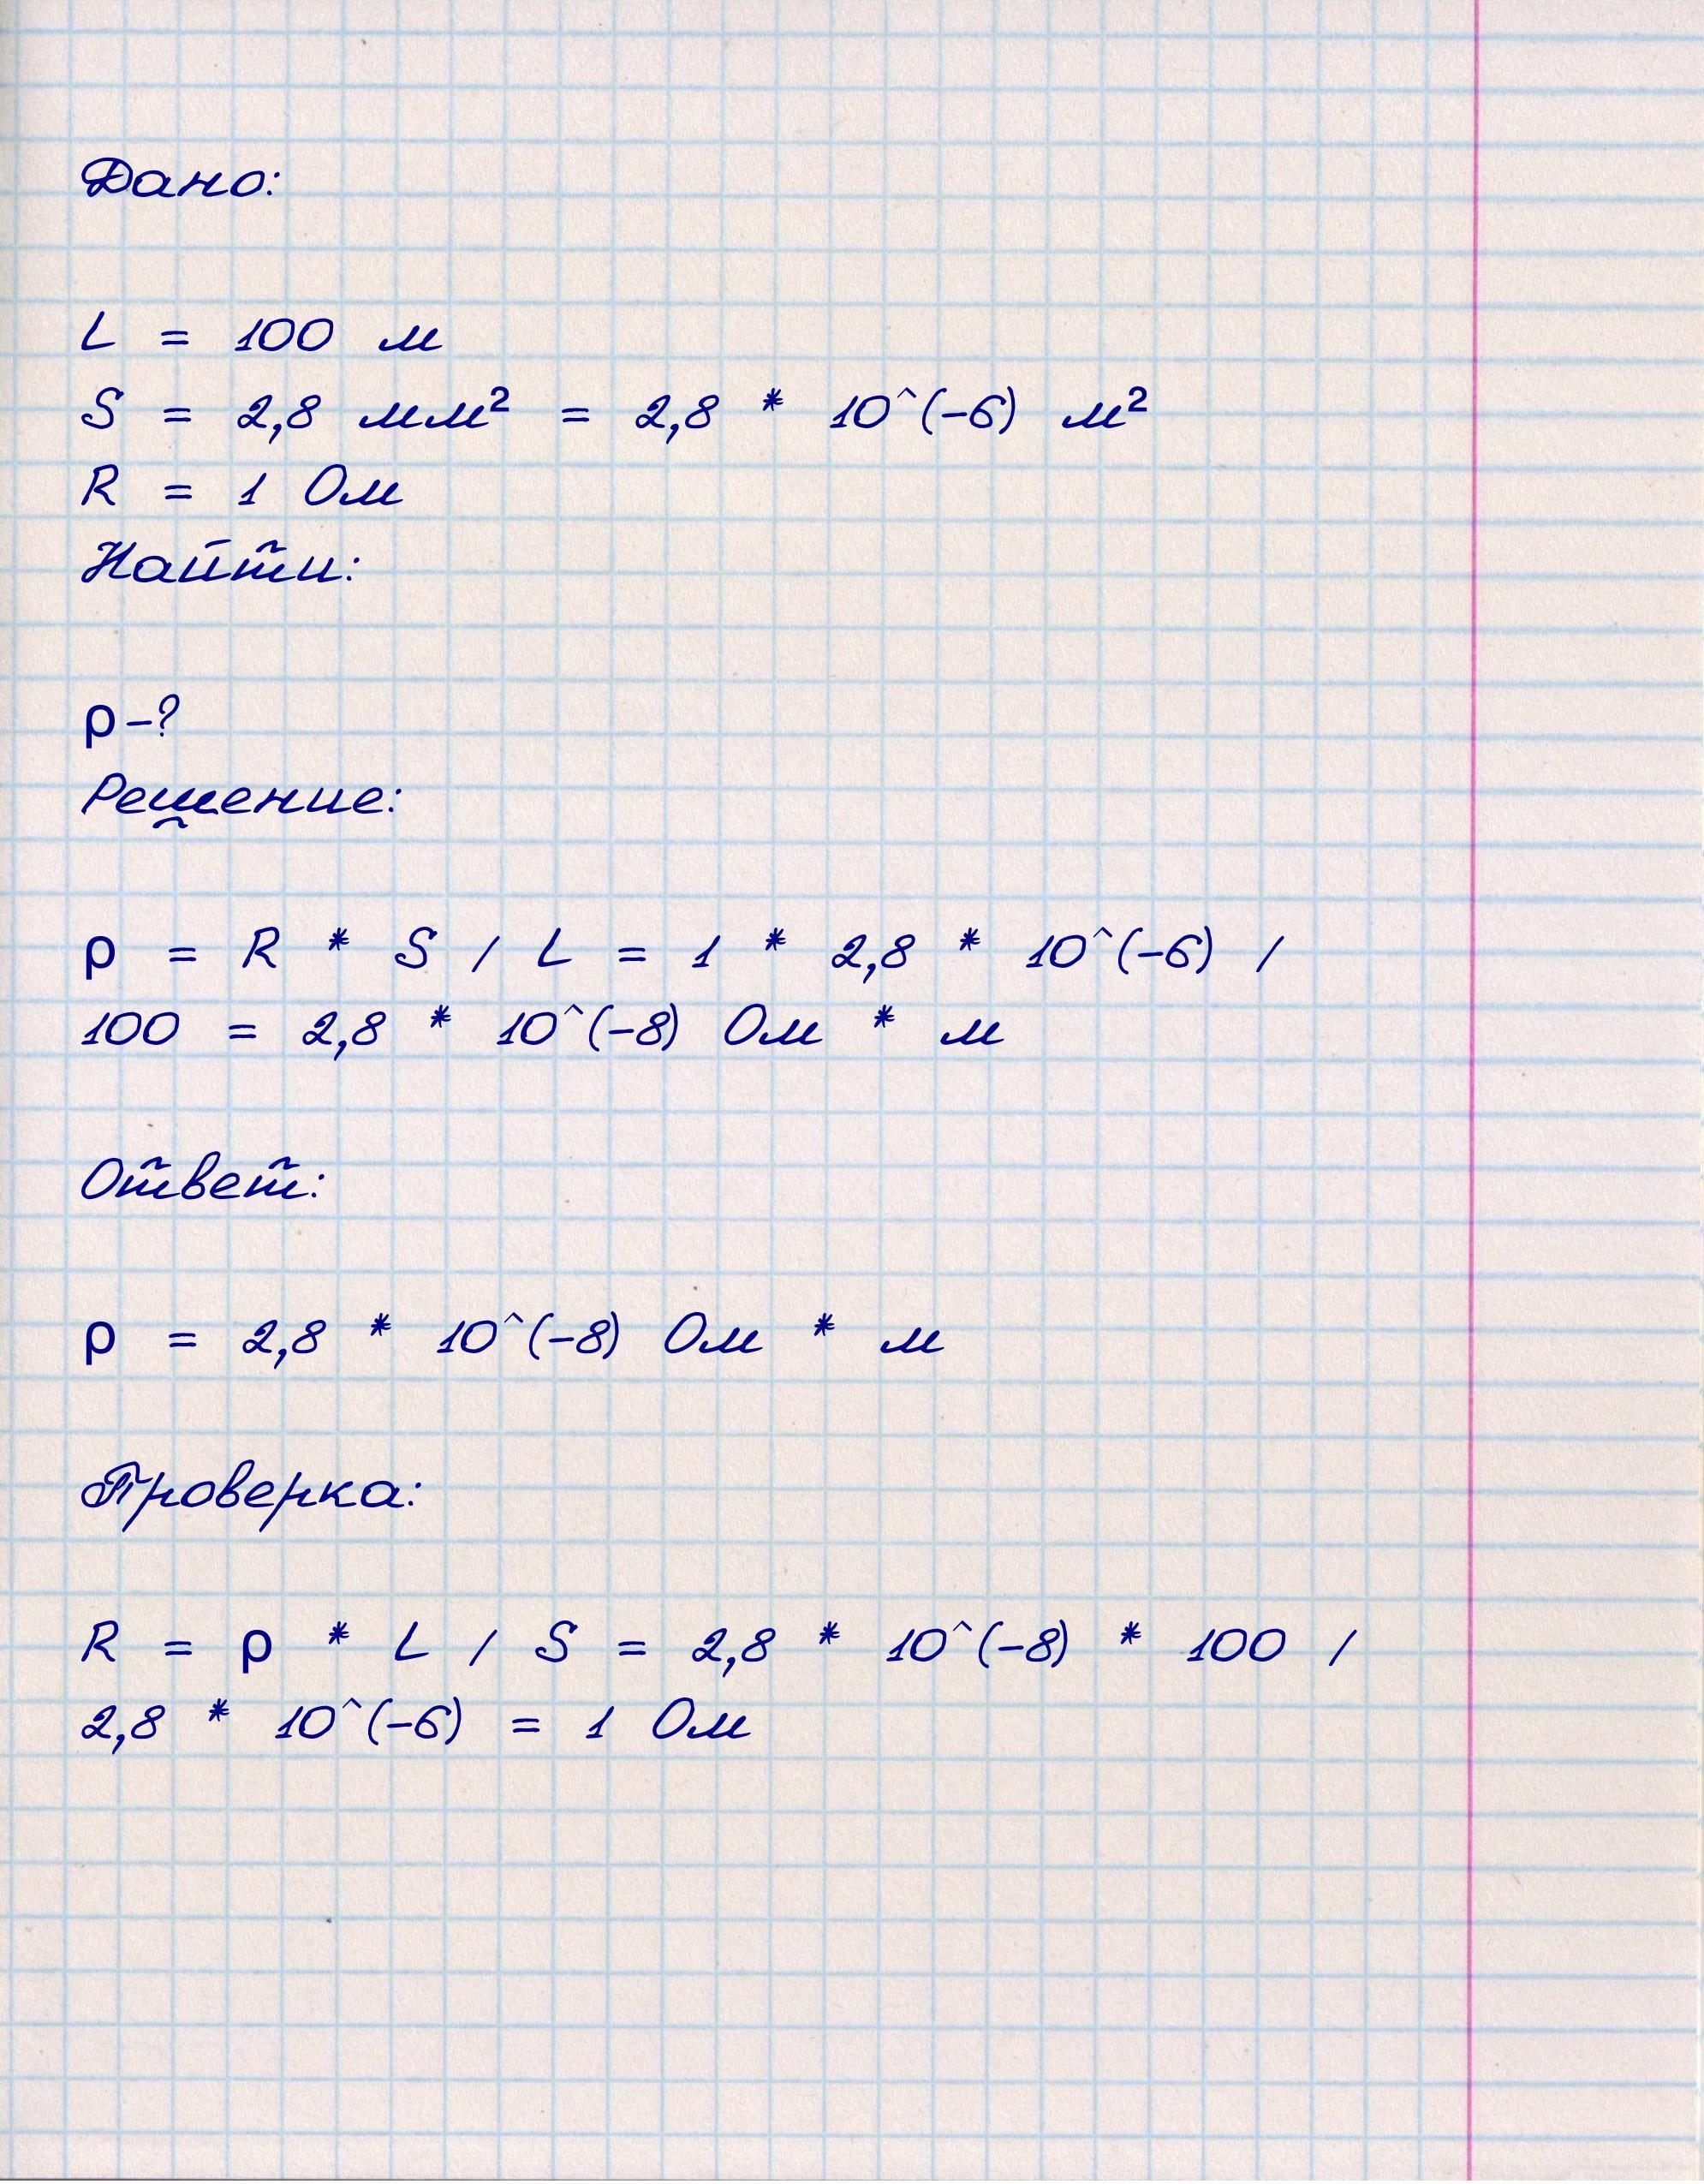 Дано:
L = 100 м
S = 2,8 мм² = 2,8 * 10^(-6) м²
R = 1 Ом
Найти:
ρ-?
Решение:
ρ = R * S / L = 1 * 2,8 * 10^(-6) /
100 = 2,8 * 10^(-8) Ом * м
Ответ:
ρ = 2,8 * 10^(-8) Ом * м
Проверка:
R = ρ * L / S = 2,8 * 10^(-8) * 100 /
2,8 * 10^(-6) = 1 Ом